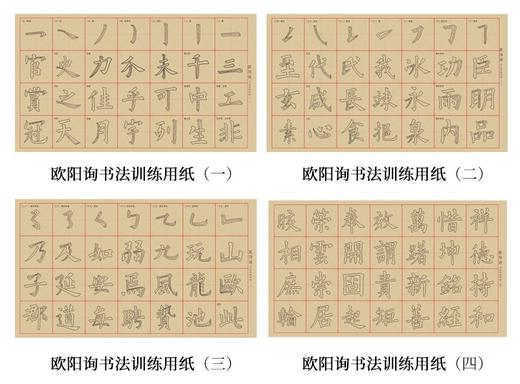 官火力介未千三
賞之佳乎可中工
冠天月宇列生非
欧阳询书法训练用纸（一）
垩代民我水功巨
玄咸長竦永雨明
素心食挹泉内品
欧阳询书法训练用纸（二）
乃及如弱九玩山
子延安焉風龍歐
郡道每聘贄池此
欧阳询书法训练用纸（三）
皎榮奉放萬惜祥
相雲開謂踏坤德
庶崇固貴新銘持
輪居起矩善經和
欧阳询书法训练用纸（四）